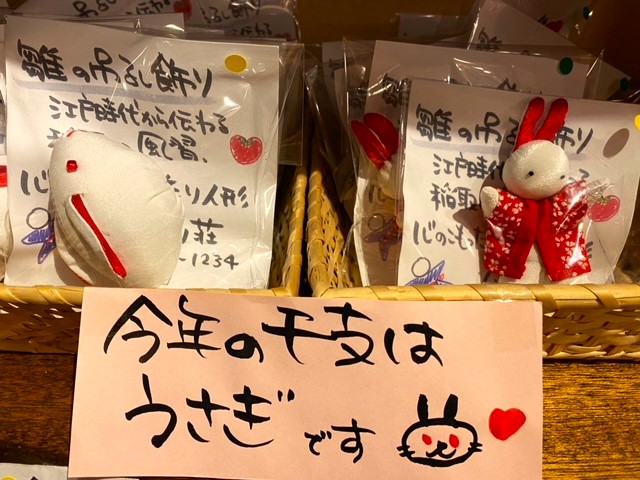 雛の吊るし飾り
江戸時代から伝わる
風習、
り人形
荘
-1234
雛の吊るし飾り
江戸時
稲取
心のこもった
今年の干支は
うさぎです